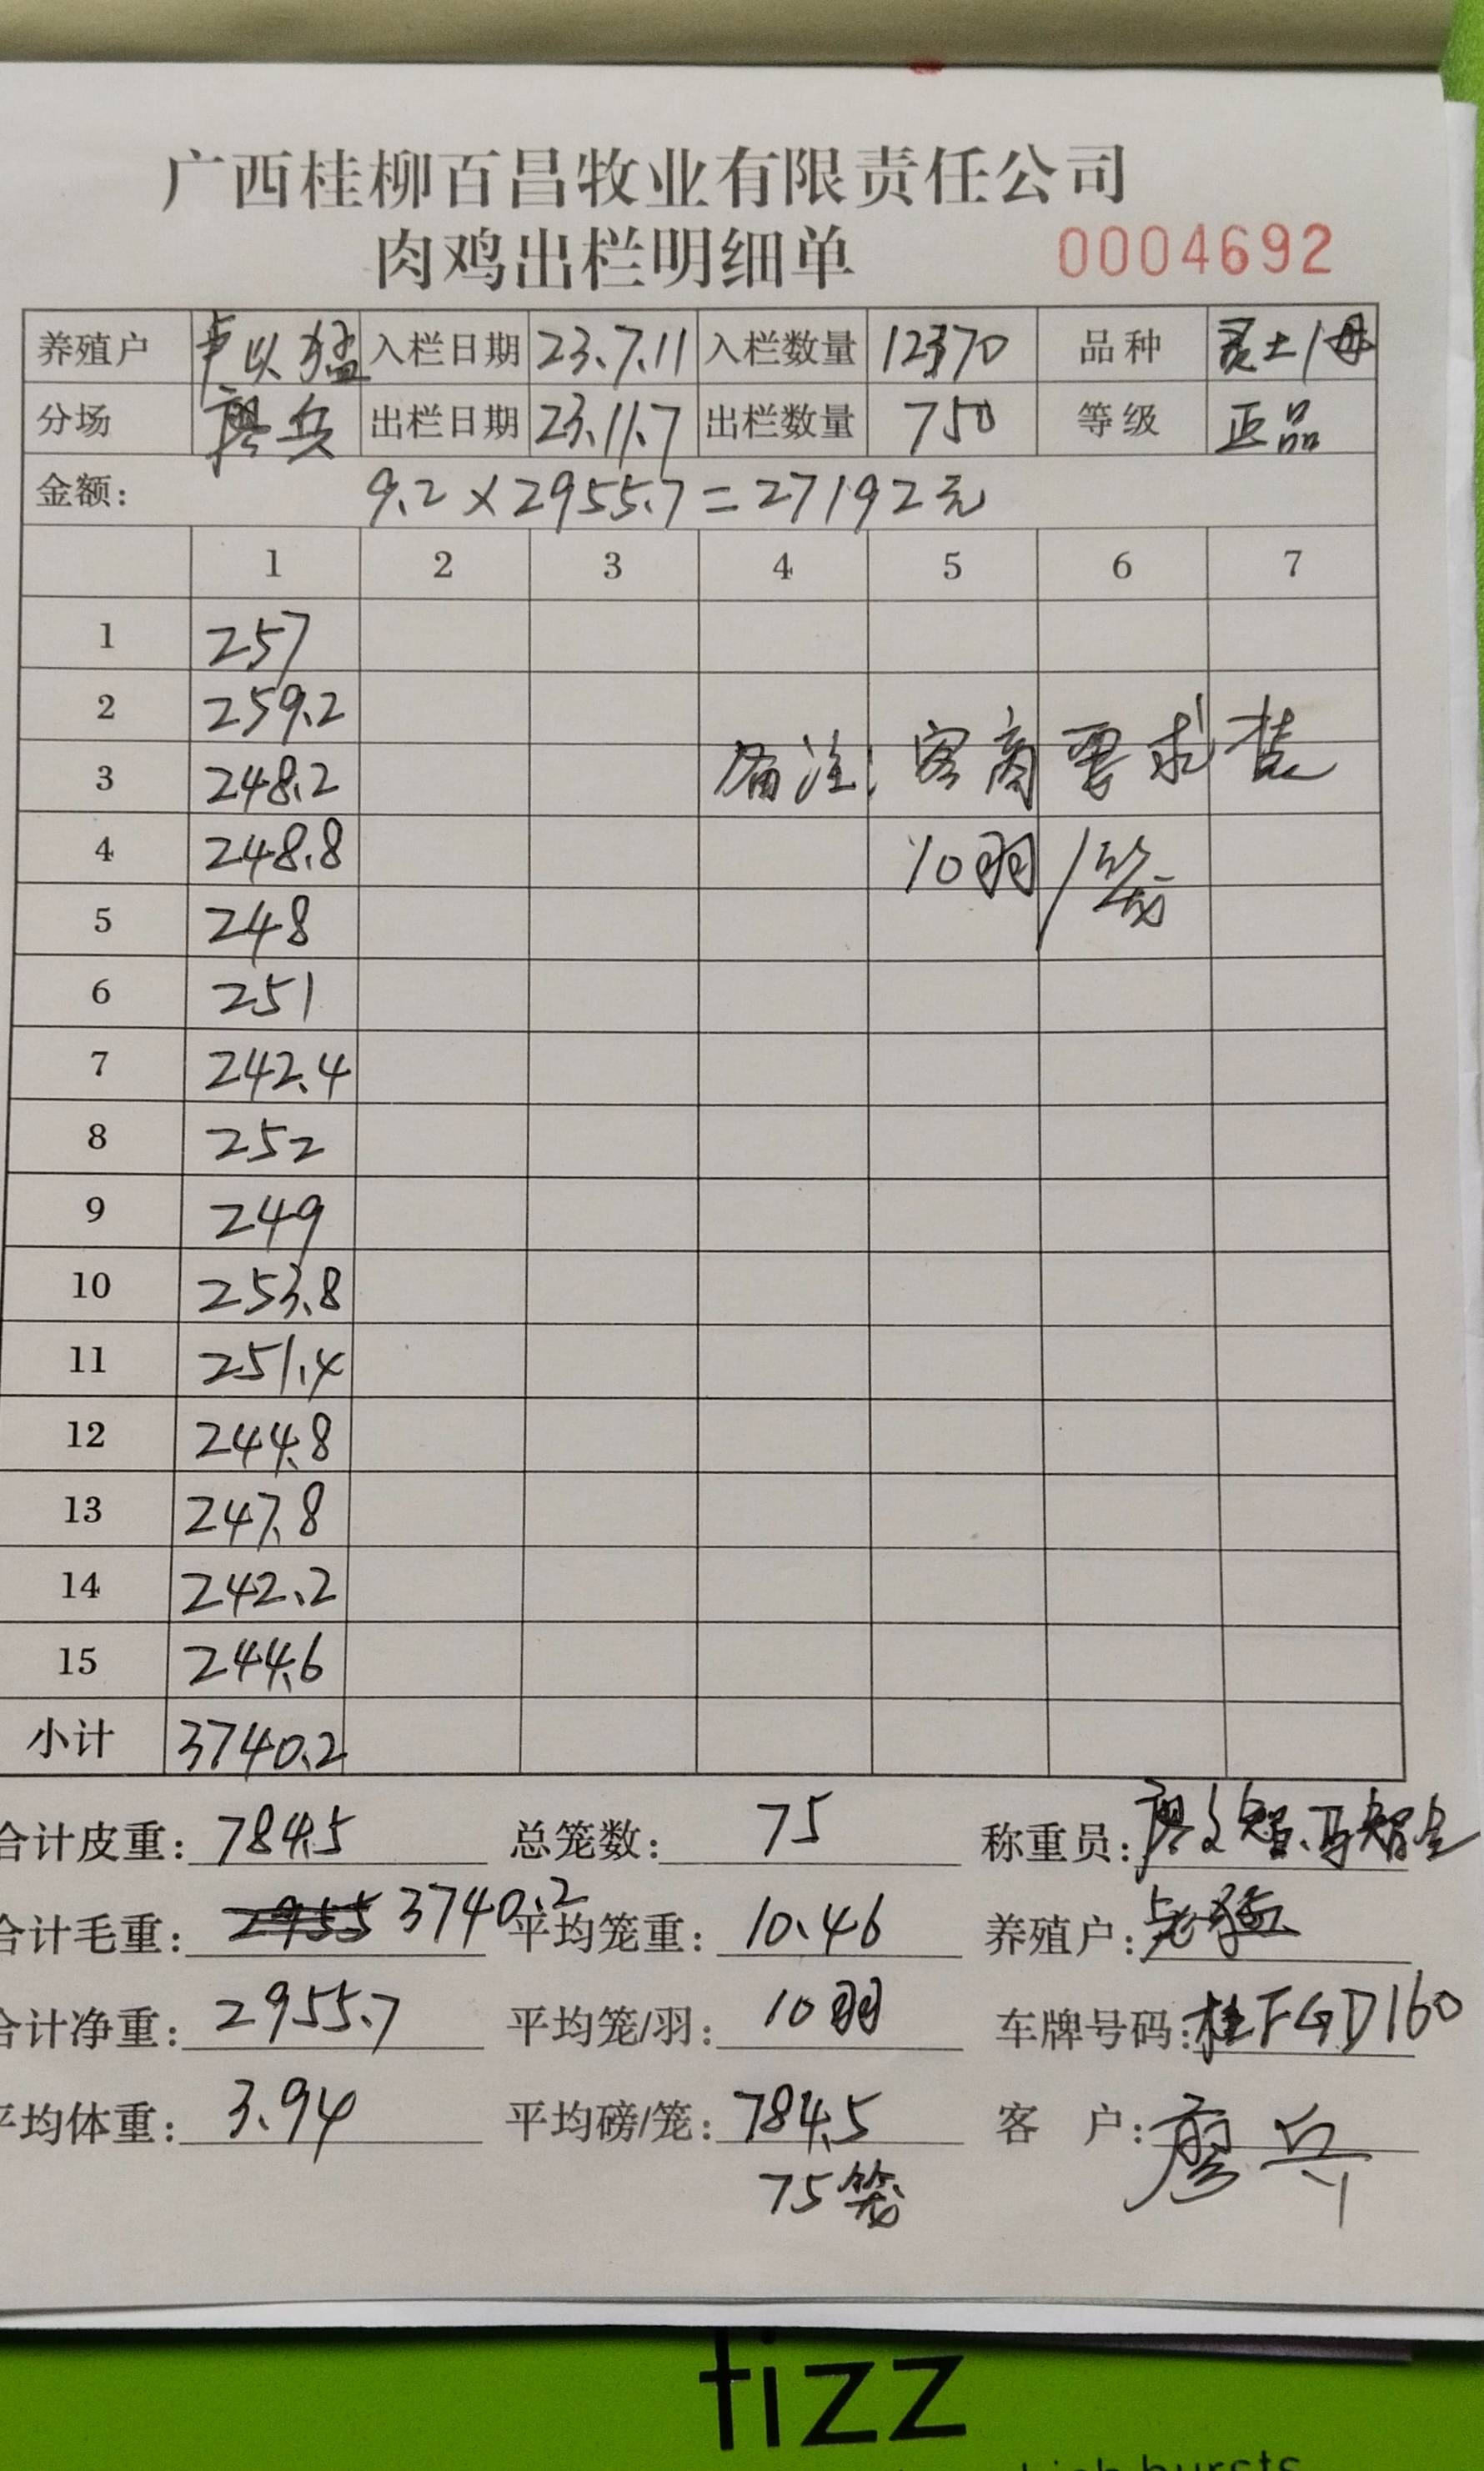 广西桂柳百昌牧业有限责任公司
肉鸡出栏明细单 0004692
养殖户 卢以猛 入栏日期 23.7.11 入栏数量 12370 品种 灵土1母
分场 廖兵 出栏日期 23.11.7 出栏数量 750 等级 正品
金额: 9.2×2955.7=27192元
1 2 3 4 5 6 7
1 257
2 259.2
3 248.2
备注: 客商要求装
4 248.8
10羽/笼
5 248
6 251
7 242.4
8 252
9 249
10 253.8
11 251.4
12 244.8
13 247.8
14 242.2
15 244.6
小计 3740.2
合计皮重: 784.5 总笼数: 75 称重员: 廖文智、马智全
合计毛重: 2955 3740.2 平均笼重: 10.46 养殖户: 卢以猛
合计净重: 2955.7 平均笼/羽: 10羽 车牌号码: 桂FGD160
平均体重: 3.94 平均磅/笼: 784.5 客 户: 廖兵
75笼
fizz
high bursts